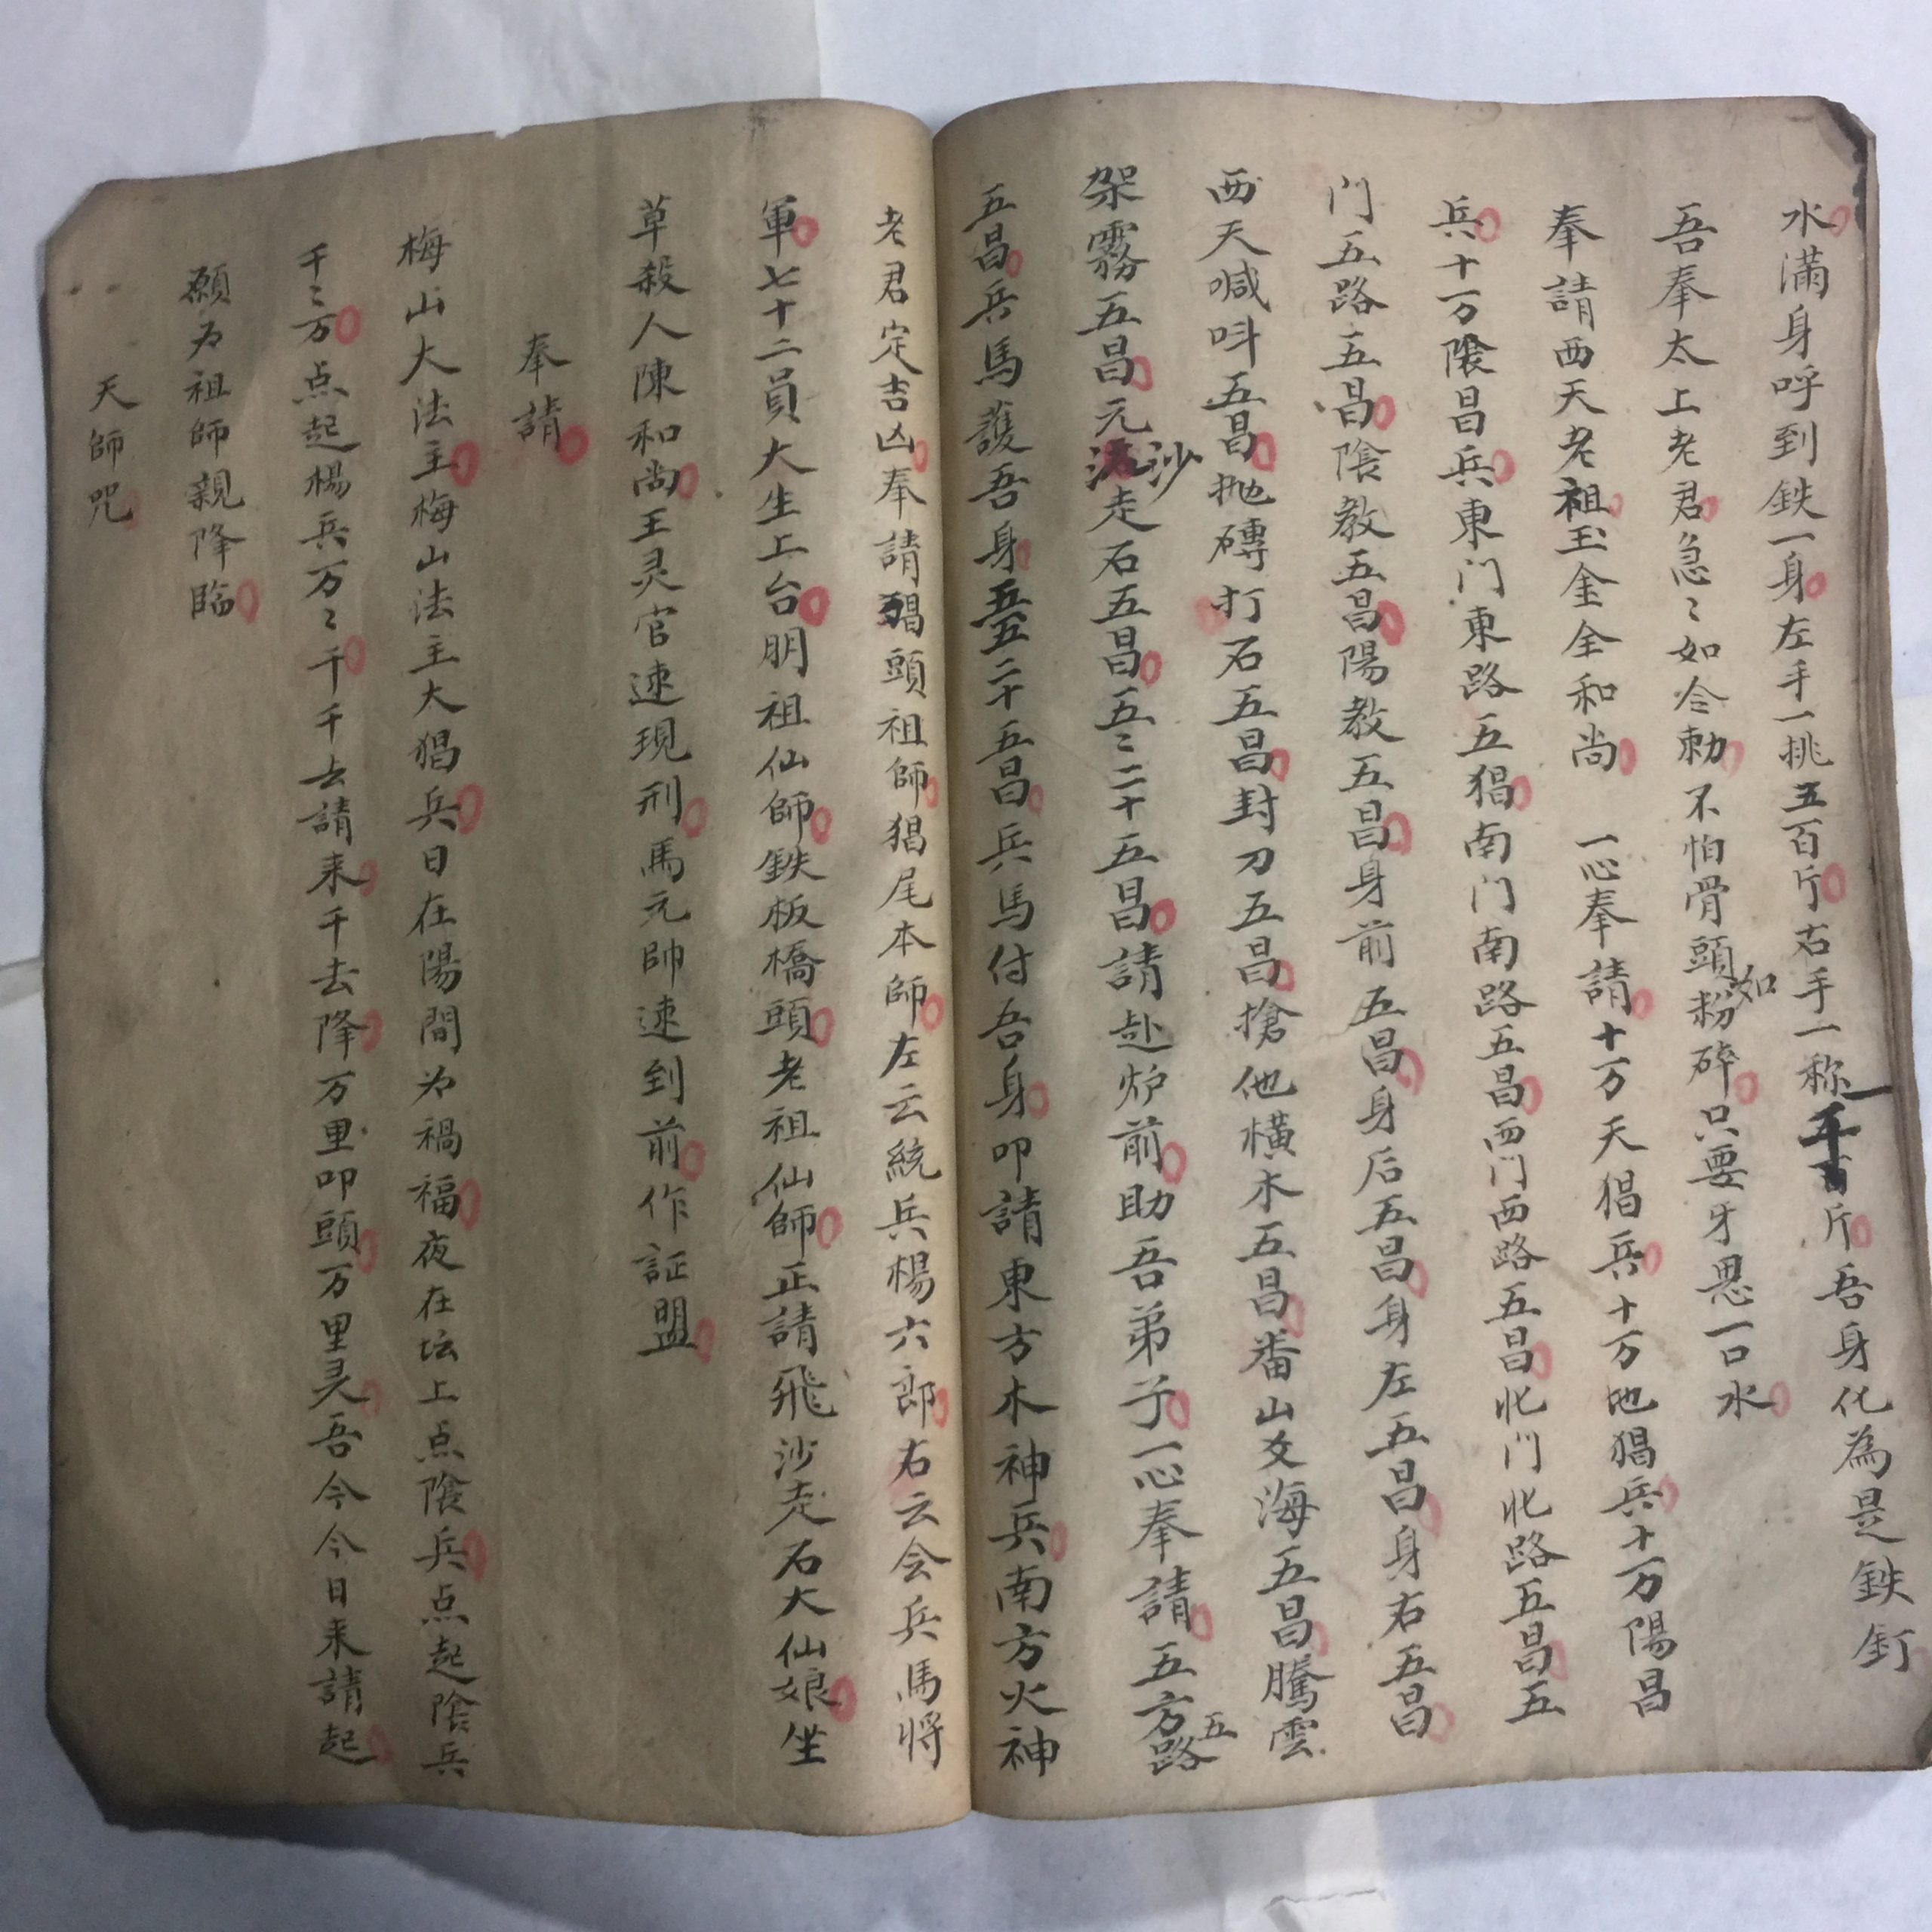 水滿身呼到鉄一身左手一挑五百斤右手一称一千斤吾身化為是鉄釘
吾奉太上老君急〻如令勅不怕骨頭如粉碎只要牙恩一口水
奉請西天老祖玉金全和尚 一心奉請十万天猖兵十万地猖兵十万陽昌
兵十万陰昌兵東门東路五猖南门南路五昌西门西路五昌北门北路五昌五
门五路五昌陰教五昌陽教五昌身前五昌身后五昌身左五昌身右五昌
西天喊呌五昌抛磚打石五昌封刀五昌搶他橫木五昌番山爻海五昌騰雲
架霧五昌元沙走石五昌五〻二十五昌請赴炉前助吾弟子一心奉請五方五路
五昌兵馬護吾身五五二十五昌兵馬付吾身叩請東方木神兵南方火神
老君定吉凶奉請猖頭祖師猖尾本師左云統兵楊六郎右云会兵馬将
軍七十二員大生上台朋祖仙師鉄板橋頭老祖仙師正請飛沙走石大仙娘坐
草殺人陳和尚王灵官速現刑馬元帥速到前作証盟
奉請
梅山大法主梅山法主大猖兵日在陽間为禍福夜在坛上点陰兵点起陰兵
千〻万点起楊兵万〻千千去請来千去降万里叩頭万里灵吾今今日来請起
願为祖師親降臨
天師咒